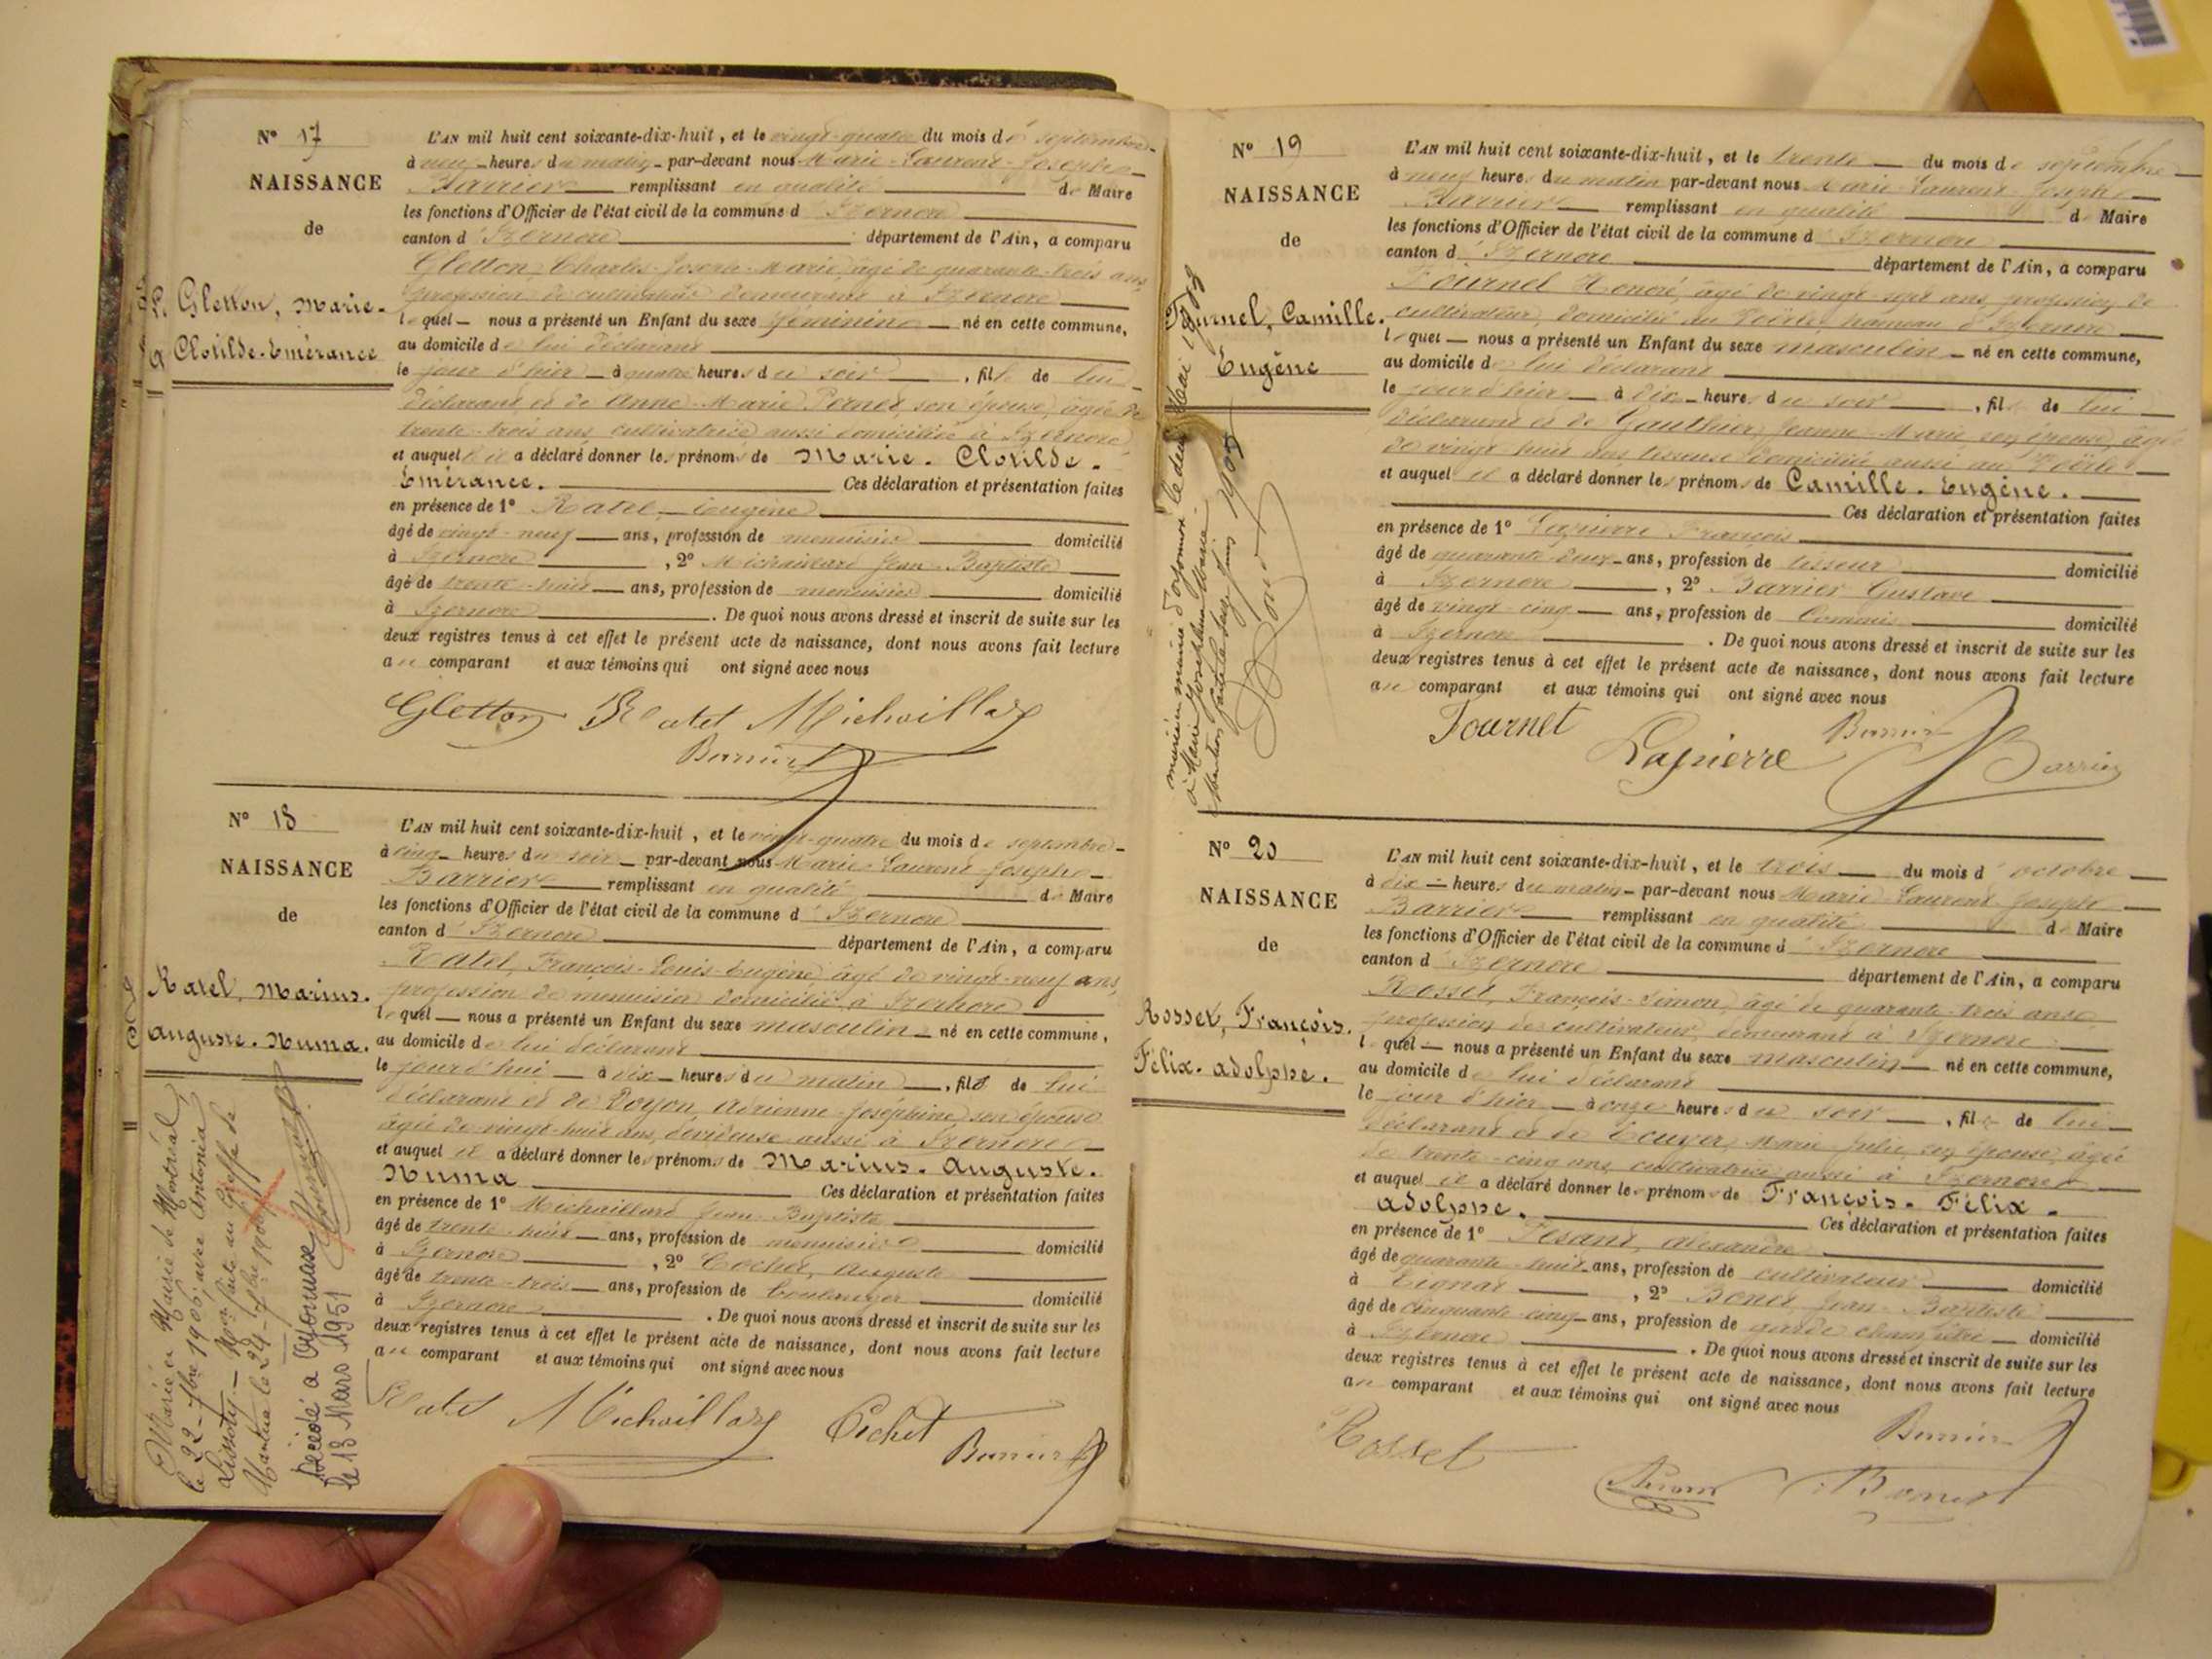 N° 17
NAISSANCE
de
Gletton, Marie-
Clotilde-Emérance
L'AN mil huit cent soixante-dix-huit, et le vingt-quatre du mois de septembre
à neuf heures du matin par-devant nous Marie-Laurent-Joseph
Barrier remplissant en qualité de Maire
les fonctions d'Officier de l'état civil de la commune d'Izernore
canton d'Izernore département de l'Ain, a comparu
Gletton, Charles-Joseph-Marie, âgé de quarante-trois ans,
profession de cultivateur demeurant à Izernore
lequel nous a présenté un Enfant du sexe féminin né en cette commune,
au domicile de lui déclarant
le jour d'hier à quatre heures du soir, fille de lui
déclarant et de Anne-Marie Pernet, son épouse, âgée de
trente-trois ans cultivatrice, aussi domiciliée à Izernore
et auquel il a déclaré donner les prénoms de Marie. Clotilde.
Emérance. Ces déclaration et présentation faites
en présence de 1° Ratel, Eugène
âgé de vingt-neuf ans, profession de menuisier domicilié
à Izernore, 2° Michaillard Jean-Baptiste
âgé de trente-huit ans, profession de menuisier domicilié
à Izernore. De quoi nous avons dressé et inscrit de suite sur les
deux registres tenus à cet effet le présent acte de naissance, dont nous avons fait lecture
au comparant et aux témoins qui ont signé avec nous
Gletton Ratel Michaillard
Barrier
N° 18
NAISSANCE
de
Ratel, Marius.
Auguste. Numa.
Marié en Mairie de Montréal
le 22 - 7bre 1906, avec Antonia
Mon faite au Greffe de
Nantua le 24 - 7bre 1906
Décédé à Oyonnax
le 13 Mars 1951
L'AN mil huit cent soixante-dix-huit, et le vingt-quatre du mois de septembre
à cinq heures du soir par-devant nous Marie-Laurent-Joseph
Barrier remplissant en qualité de Maire
les fonctions d'Officier de l'état civil de la commune d'Izernore
canton d'Izernore département de l'Ain, a comparu
Ratel, François-Louis-Eugène, âgé de vingt-neuf ans,
profession de menuisier domicilié à Izernore
lequel nous a présenté un Enfant du sexe masculin né en cette commune,
au domicile de lui déclarant
le jourd'hui à dix heures du matin, fils de lui
déclarant et de Royon, Adrienne-Joséphine, son épouse
âgée de vingt-huit ans, dévideuse aussi à Izernore
et auquel il a déclaré donner les prénoms de Marius. Auguste.
Numa Ces déclaration et présentation faites
en présence de 1° Michaillard Jean-Baptiste
âgé de trente-huit ans, profession de menuisier domicilié
à Izernore, 2° Cochet, Auguste
âgé de trente-trois ans, profession de boulanger domicilié
à Izernore. De quoi nous avons dressé et inscrit de suite sur les
deux registres tenus à cet effet le présent acte de naissance, dont nous avons fait lecture
au comparant et aux témoins qui ont signé avec nous
Ratel Michaillard Cochet
Barrier
N° 19
NAISSANCE
de
Fournel, Camille.
Eugène
marié en mairie d'Oyonnax le deux Mai 1908
à Marie Joséphine
Mention faite le seize Juin 1908
L'AN mil huit cent soixante-dix-huit, et le trente du mois de septembre
à neuf heures du matin par-devant nous Marie-Laurent-Joseph
Barrier remplissant en qualité de Maire
les fonctions d'Officier de l'état civil de la commune d'Izernore
canton d'Izernore département de l'Ain, a comparu
Fournel Honoré, âgé de vingt-sept ans, profession de
cultivateur, domicilié au Voërle, hameau d'Izernore
lequel nous a présenté un Enfant du sexe masculin né en cette commune,
au domicile de lui déclarant
le jour d'hier à dix heures du soir, fils de lui
déclarant et de Gauthier, Jeanne-Marie, son épouse, âgée
de vingt-huit ans, tisseuse domiciliée aussi au Voërle
et auquel il a déclaré donner les prénoms de Camille. Eugène.
Ces déclaration et présentation faites
en présence de 1° Lapierre François
âgé de quarante-deux ans, profession de tisseur domicilié
à Izernore, 2° Barrier Gustave
âgé de vingt-cinq ans, profession de Commis domicilié
à Izernore. De quoi nous avons dressé et inscrit de suite sur les
deux registres tenus à cet effet le présent acte de naissance, dont nous avons fait lecture
au comparant et aux témoins qui ont signé avec nous
Fournel Lapierre Barrier Barrier
N° 20
NAISSANCE
de
Rosset, François.
Félix. Adolphe.
L'AN mil huit cent soixante-dix-huit, et le trois du mois d'octobre
à dix heures du matin par-devant nous Marie-Laurent-Joseph
Barrier remplissant en qualité de Maire
les fonctions d'Officier de l'état civil de la commune d'Izernore
canton d'Izernore département de l'Ain, a comparu
Rosset, François-Simon, âgé de quarante-trois ans,
profession de cultivateur, demeurant à Izernore
lequel nous a présenté un Enfant du sexe masculin né en cette commune,
au domicile de lui déclarant
le jour d'hier à onze heures du soir, fils de lui
déclarant et de Ecuyer, Marie-Julie, son épouse, âgée
de trente-cinq ans, cultivatrice, aussi à Izernore
et auquel il a déclaré donner les prénoms de François. Félix.
Adolphe. Ces déclaration et présentation faites
en présence de 1° Alexandre
âgé de quarante-huit ans, profession de cultivateur domicilié
à Tignat, 2° Bonet, Jean-Baptiste
âgé de cinquante-cinq ans, profession de garde champêtre domicilié
à Izernore. De quoi nous avons dressé et inscrit de suite sur les
deux registres tenus à cet effet le présent acte de naissance, dont nous avons fait lecture
au comparant et aux témoins qui ont signé avec nous
Rosset Barrier
Bonet